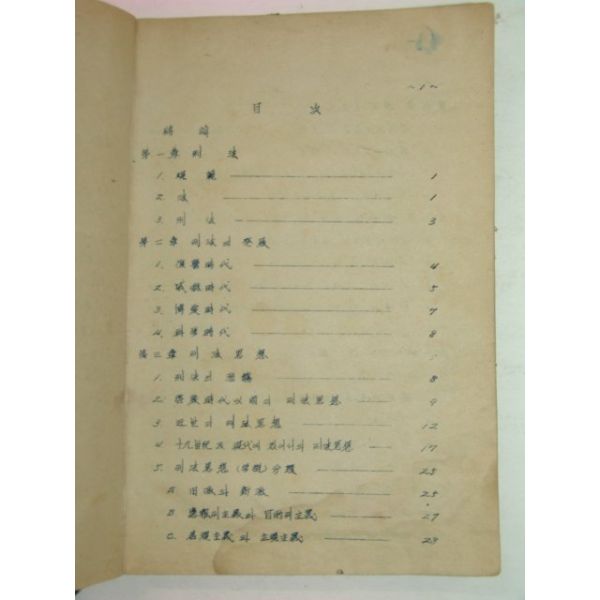 ~1~
目 次
緖 論
第一章 刑 法
1. 規 範 1
2. 法 1
3. 刑 法 3
第二章 刑法의 発展
1. 復讐時代 4
2. 威嚇時代 5
3. 博愛時代 7
4. 科學時代 8
第三章 刑 法 思 想
1. 刑法의 8
2. 啓蒙時代以前의 刑法思想 9
3. 近世의 刑法思想 12
4. 十九世紀 및 現代에 있어서의 刑法思想 17
5. 刑法思想 (学説) 分類 25
A. 旧派와 新派 25
B. 應報刑主義와 目的刑主義 27
C. 客観主義와 主観主義 29